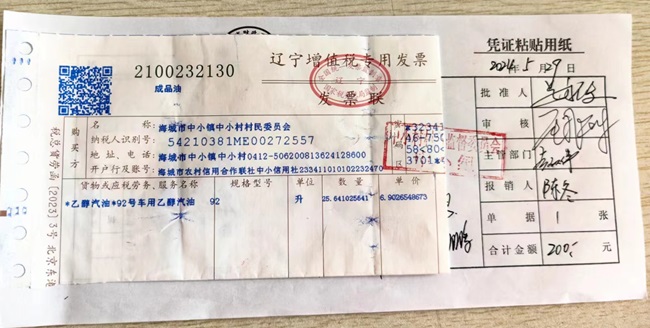 2100232130
成品油
辽宁增值税专用发票
发票联
税总货劳函[2023]3号北京东港
购买方
名称:海城市中小镇中小村村民委员会
纳税人识别号:54210381ME00272557
地址、电话:海城市中小镇中小村0412-506200813624128600
开户行及账号:海城市农村信用合作联社中小信用社233411010102232470
货物或应税劳务、服务名称 规格型号 单位 数量 单价
*乙醇汽油*92号车用乙醇汽油 92 升 25.641025641 6.9026548673
监督委员会
凭证粘贴用纸
2024年5月29日
批准人
审核
主管部门
报销人 陈冬
单据 1 张
合计金额 200.- 元